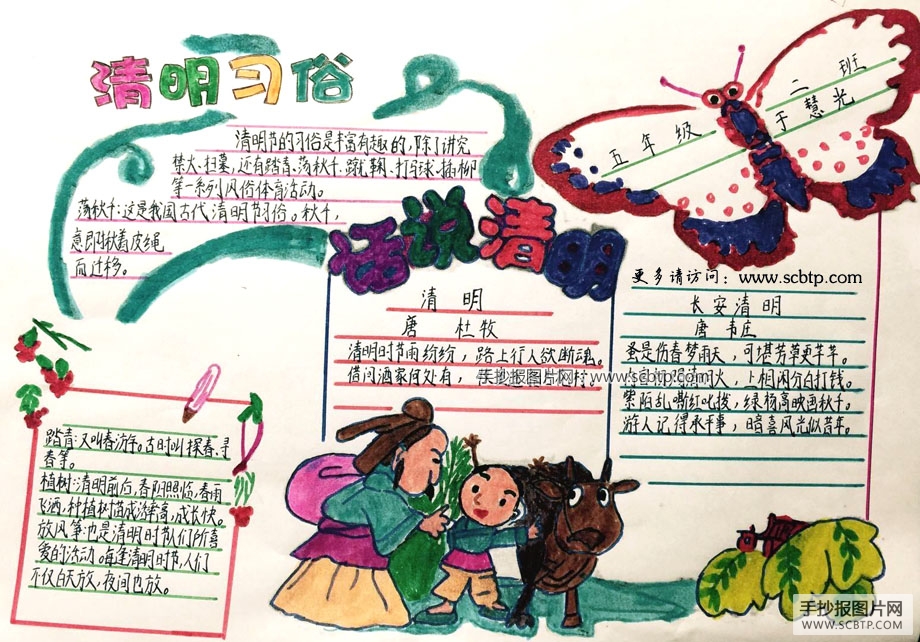 清明习俗
清明节的习俗是丰富有趣的,除了讲究
禁火、扫墓,还有踏青、荡秋千、蹴鞠、打马球、插柳
等一系列风俗体育活动。
荡秋千:这是我国古代清明节习俗。秋千,
意即揪着皮绳
而迁移。
五年级二班
于慧光
话说清明
清明
唐 杜牧
清明时节雨纷纷,路上行人欲断魂。
借问酒家何处有,
村
手抄报图片网 www.scbtp.com
更多请访问:www.scbtp.com
长安清明
唐 韦庄
蚤是伤春梦雨天,可堪芳草更芊芊。
火,上相闲分白打钱。
紫陌乱嘶红叱拨,绿杨高映画秋千。
游人记得承平事,暗喜风光似昔年。
踏青:又叫春游。古时叫探春、寻
春等。
植树:清明前后,春阳照临,春雨
飞洒,种植树苗成活率高,成长快。
放风筝也是清明时节人们所喜
爱的活动。每逢清明时节,人们
不仅白天放,夜间也放。
手抄报图片网
WWW.SCBTP.COM